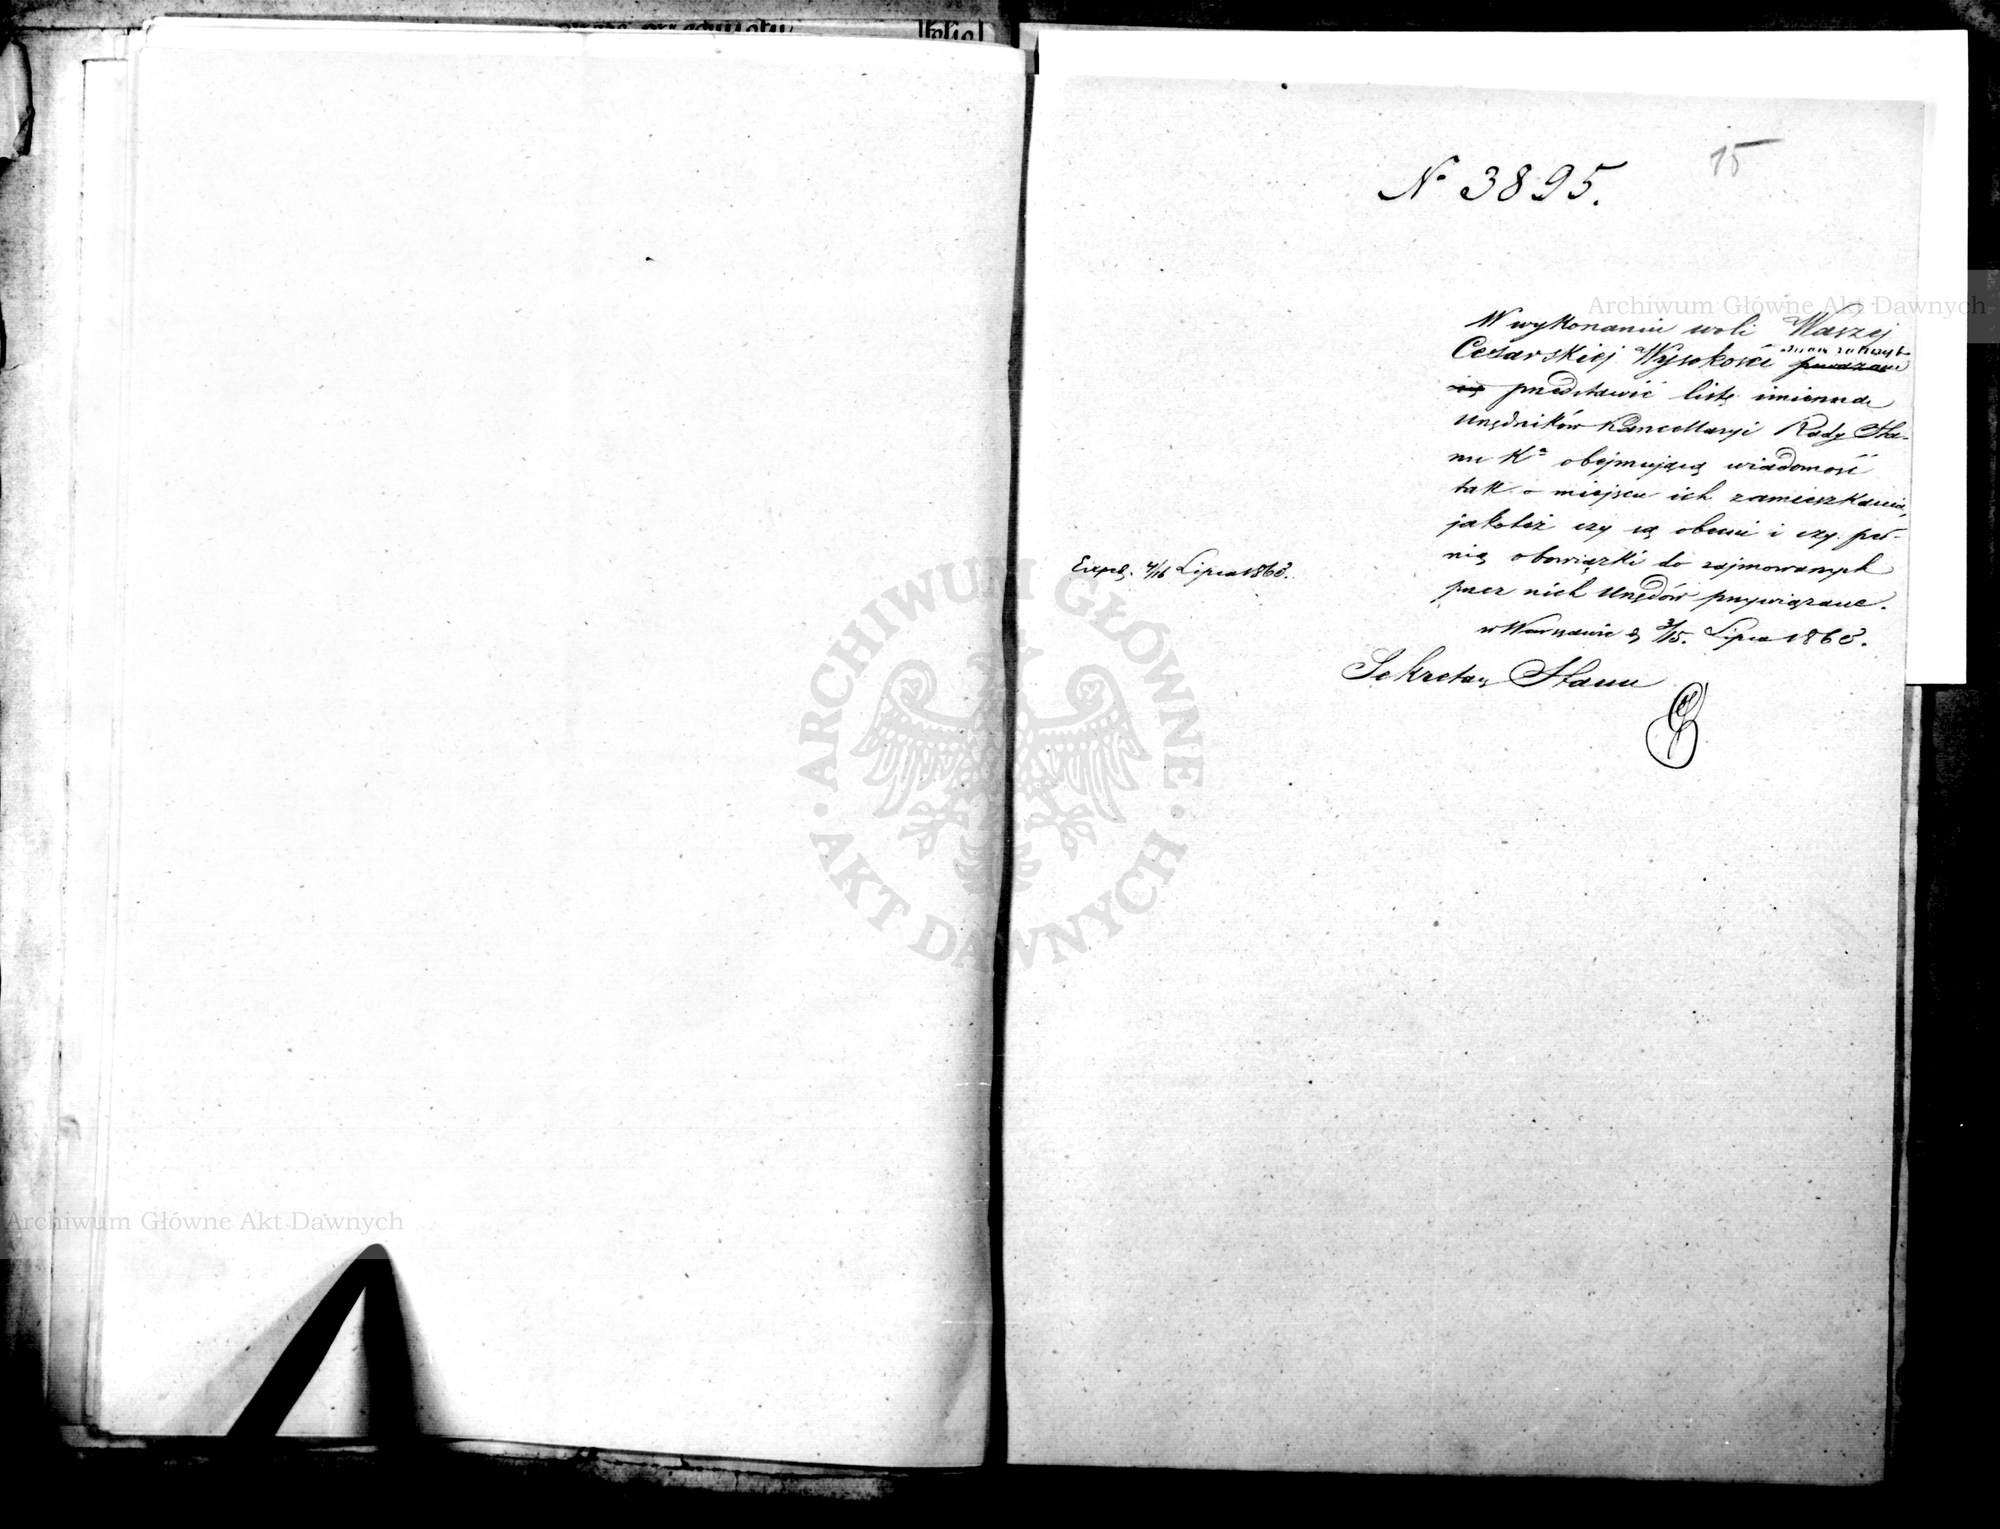 15
N° 3895.
W wykonaniu woli Waszej
Cesarskiej Wysokości mam zaszczyt
przedstawić listę imienną
urzędników Kancellaryi Rady Sta-
nu Kª obejmującą wiadomość
tak o miejscu ich zamieszkania,
jakoteż czy są obecni i czy peł-
nią obowiązki do zajmowanych
przez nich Urzędów przywiązane.
w Warszawie d. 3/15. Lipca 1863.
Sekretarz Stanu
Exped. 4/16 Lipca 1863.
Archiwum Główne Akt Dawnych
ARCHIWUM GŁÓWNE
AKT DAWNYCH
Archiwum Główne Akt Dawnych